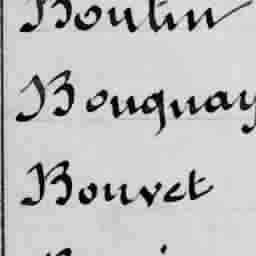 Boutin
Bouquay
Bouvet